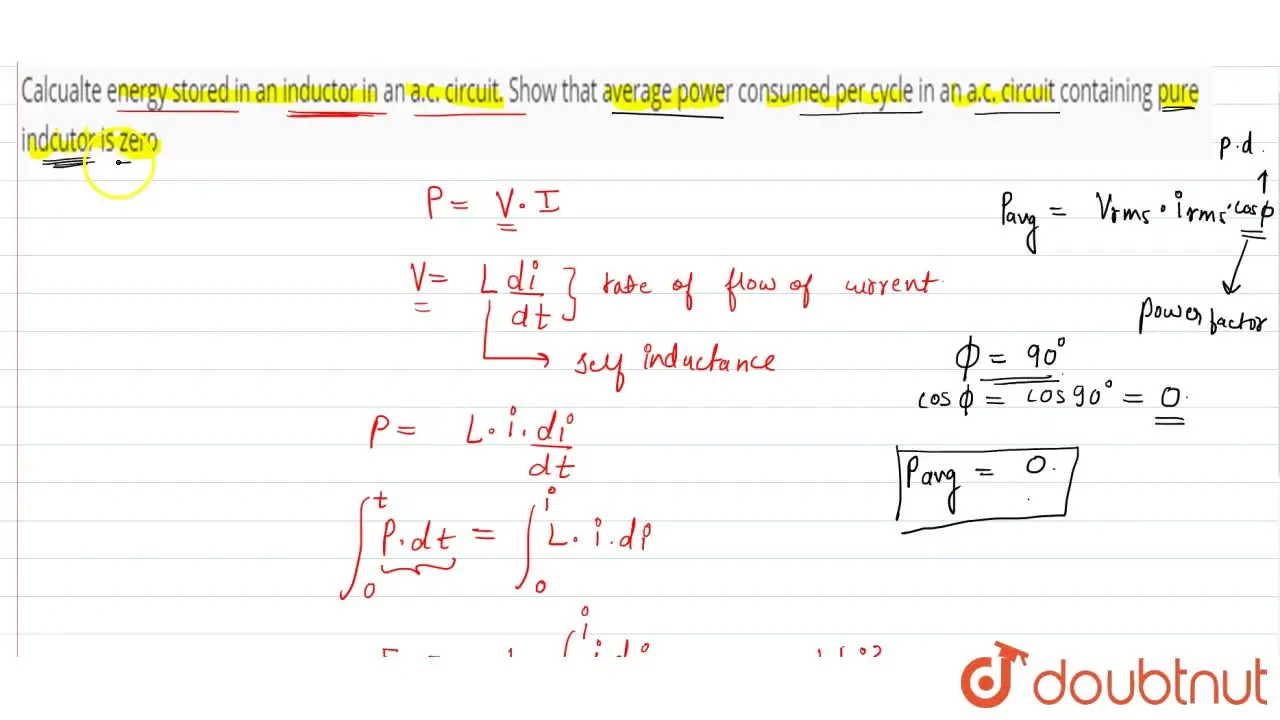 Calcualte energy stored in an inductor in an a.c. circuit. Show that average power consumed per cycle in an a.c. circuit containing pure
indcutor is zero
P = V · I
V = L di/dt } rate of flow of current
self inductance
P = L · i · di/dt
∫₀ᵗ P · dt = ∫₀ⁱ L · i · di
p.d.
Pavg = Vrms · irms · cosφ
power factor
φ = 90°
cosφ = cos90° = 0.
Pavg = 0.
doubtnut